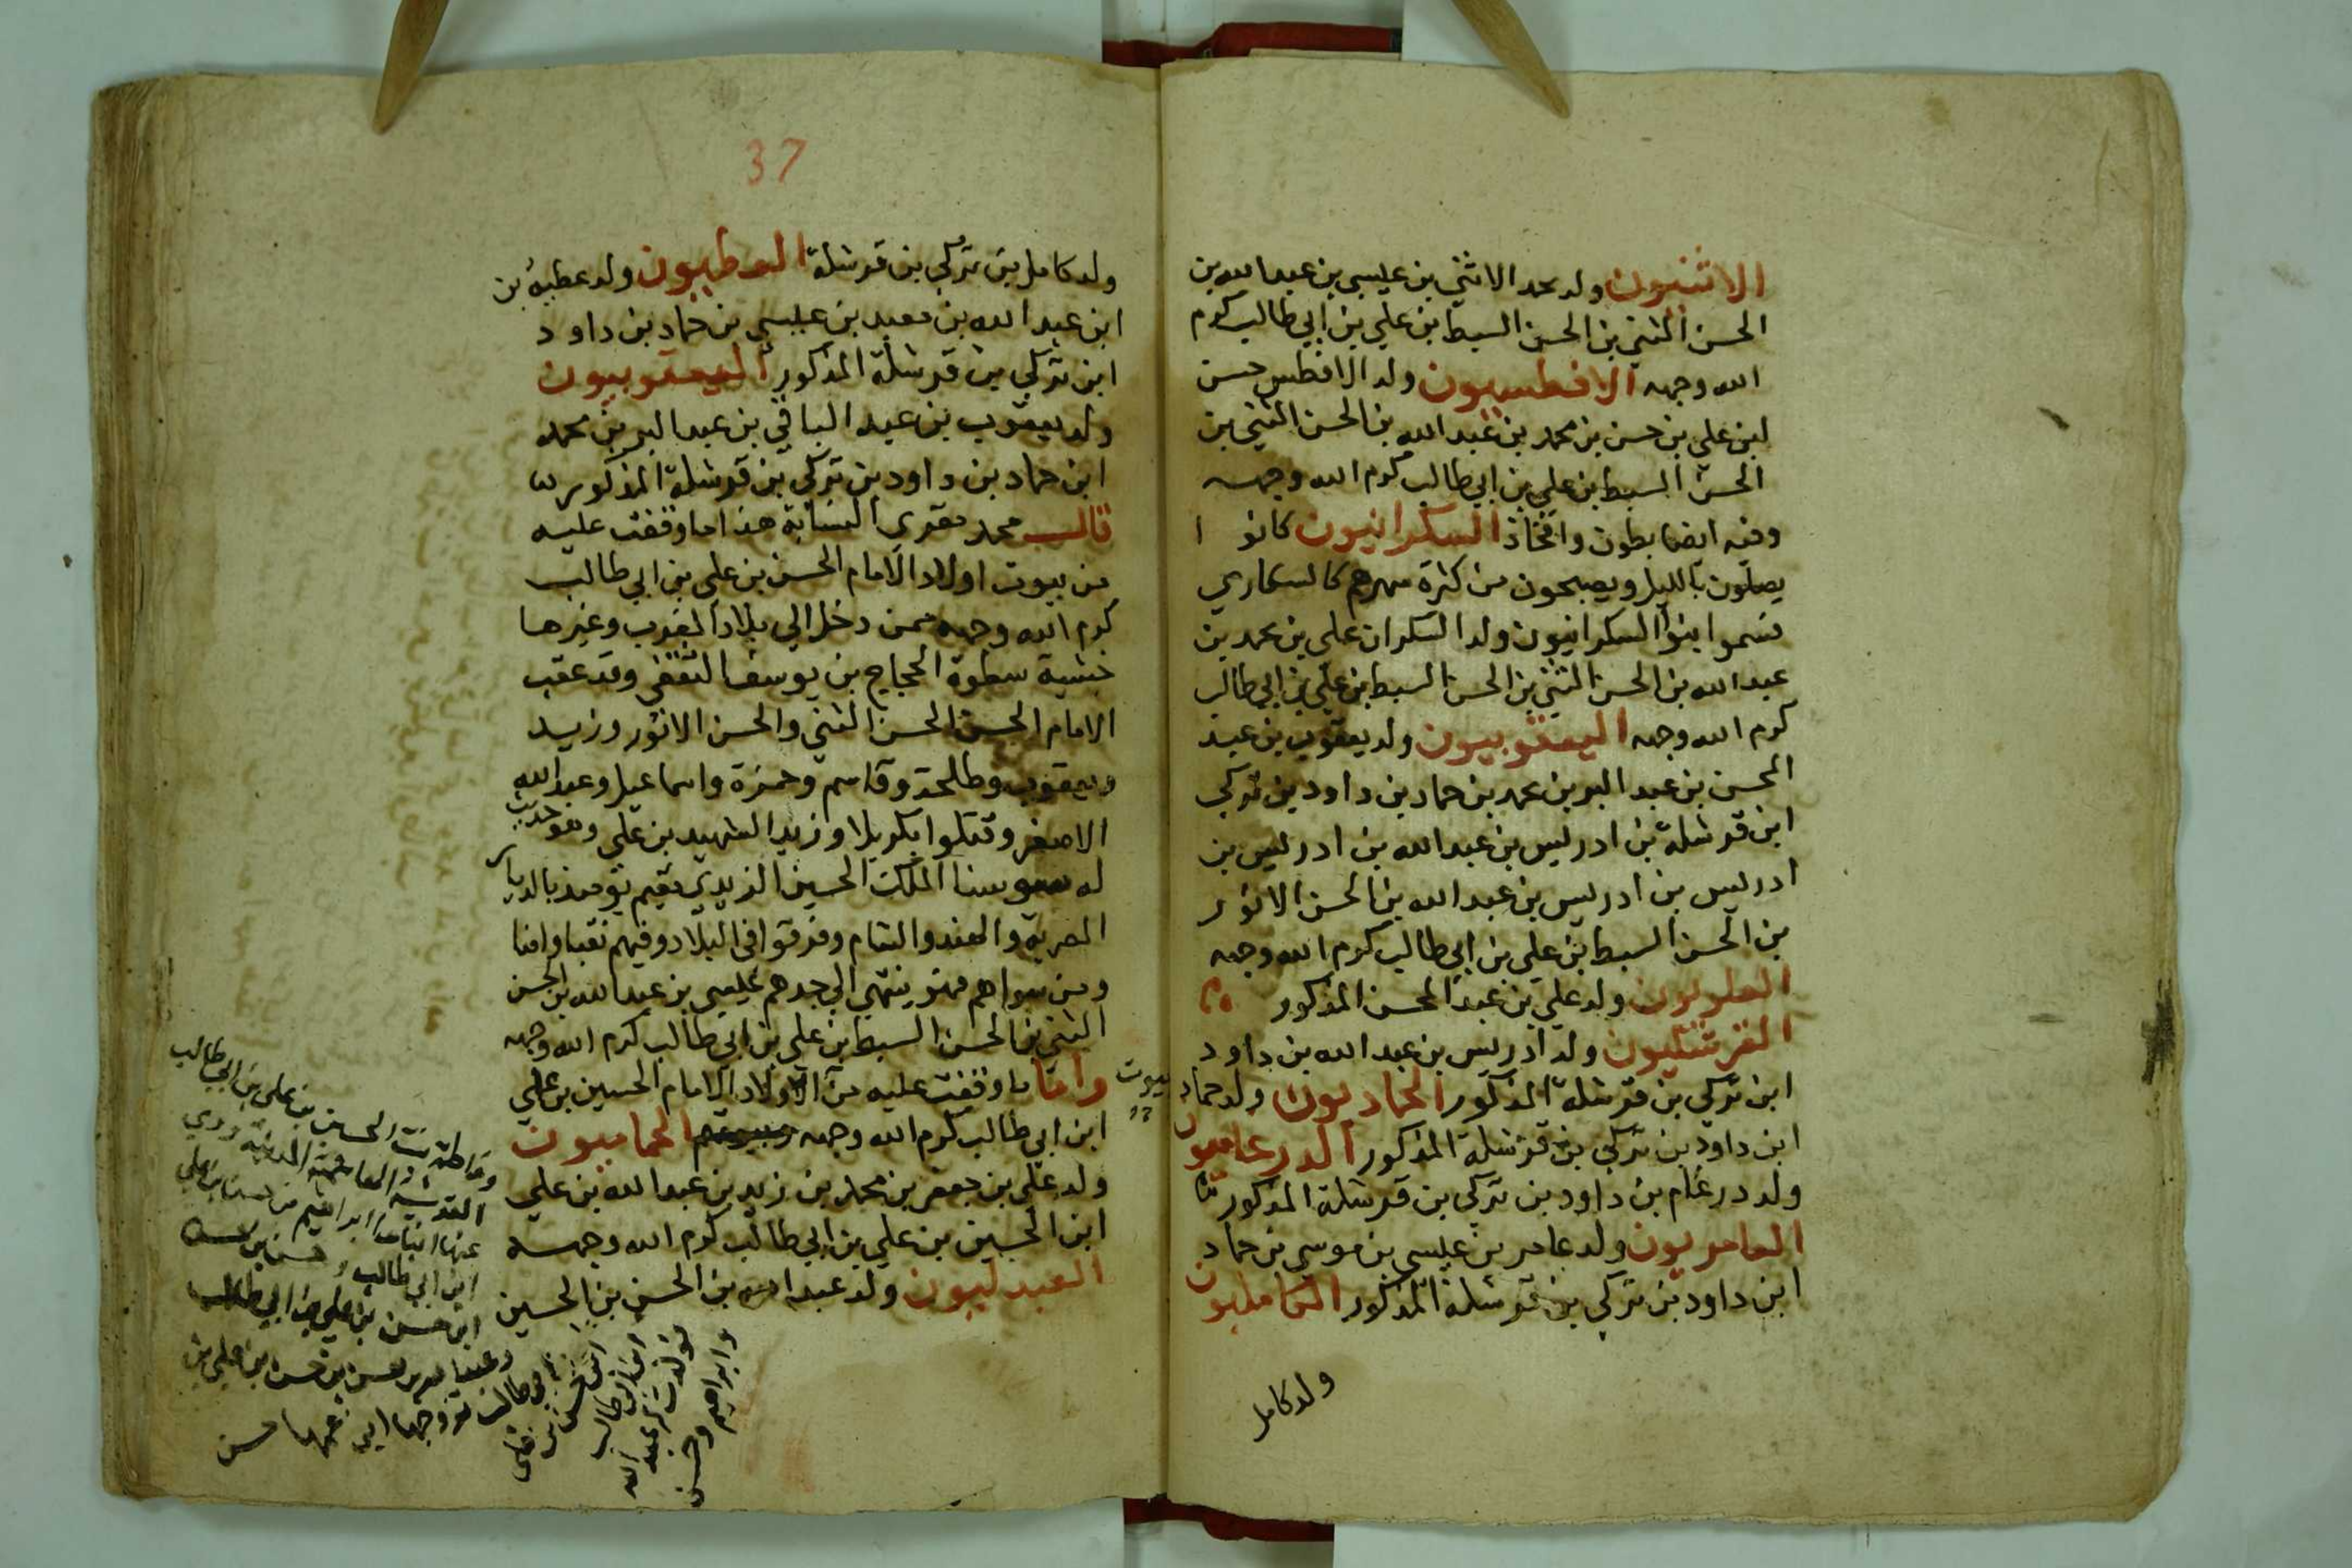 الاثنيون ولد محمد الاثني بن عيسي بن عبد الله بن
الحسن المثني بن الحسن السبط بن علي بن ابي طالب كرم
الله وجهه الافطسيون ولد الافطس حسن
ابن علي بن حسن بن محمد بن عبد الله بن الحسن المثني بن
الحسن السبط بن علي بن ابي طالب كرم الله وجهه
ومنه ايضا بطون وافخاذ السكرانيون كانوا
يصلون بالليل ويصبحون من كثرة سهرهم كالسكاري
فسموا بنوا السكرانيون ولد السكران علي بن محمد بن
عبد الله بن الحسن المثني بن الحسن السبط بن علي بن ابي طالب
كرم الله وجهه اليعقوبيون ولد يعقوب بن عبد
المحسن بن عبد البر بن محمد بن حماد بن داود بن تركي
ابن قرشلة بن ادريس بن عبد الله بن ادريس بن
ادريس بن ادريس بن عبد الله بن الحسن الانور
بن الحسن السبط بن علي بن ابي طالب كرم الله وجهه
العلويون ولد علي بن عبد المحسن المذكور
القرشليون ولد ادريس بن عبد الله بن داود
ابن تركي بن قرشلة المذكور الحماديون ولد حماد
ابن داود بن تركي بن قرشلة المذكور الدرغاميون
ولد درغام بن داود بن تركي بن قرشلة المذكور
العامريون ولد عامر بن عيسي بن موسي بن حماد
ابن داود بن تركي بن قرشلة المذكور الكامليون
ولد كامل
37
ولد كامل بن تركي بن قرشلة العطيون ولد عطية بن
ابن عبد الله بن معبد بن عيسي بن حماد بن داود
ابن تركي بن قرشلة المذكور اليعقوبيون
ولد يعقوب بن عبد الباقي بن عبد البر بن محمد
ابن حماد بن داود بن تركي بن قرشلة المذكور
قال محمد مقري النسابة هذا ما وقفت عليه
من بيوت اولاد الامام الحسن بن علي بن ابي طالب
كرم الله وجهه ممن دخل الي بلاد الغرب وغيرها
خشية سطوة الحجاج بن يوسف الثقفي وقد عقب
الامام الحسن الحسن المثني والحسن الانور وزيد
ويعقوب وطلحة وقاسم وحمزة واسماعيل وعبد الله
الاصغر وقتلوا بكربلا وزيد الشهيد بن علي وهو
له الملك الحسين الزيدي بالديار
المصرية والهند والشام وفرقوا في البلاد وفيهم نقبا وامنا
ومن سواهم فهو ينتهي الي جدهم عيسي بن عبد الله بن الحسن
المثني بن الحسن السبط بن علي بن ابي طالب كرم الله وجهه
واما ما وقفت عليه من بيوت الاولاد الامام الحسين بن علي
ابن ابي طالب كرم الله وجهه الحماميون
ولد علي بن جعفر بن محمد بن زيد بن عبد الله بن علي
ابن الحسين بن علي بن ابي طالب كرم الله وجهه
العبدليون ولد عبد الله بن الحسن بن الحسين
وفاطمة بنت الحسين بن علي بن ابي طالب
القدسية المدنية روي
عنها ابناها ابراهيم
ابن ابي طالب
ابن حسن بن علي بن ابي طالب
حسن بن حسن بن علي بن
ابي طالب تزوجها ابن عمها حسن
ابن ابي طالب
عبد الله
وابراهيم وحسن